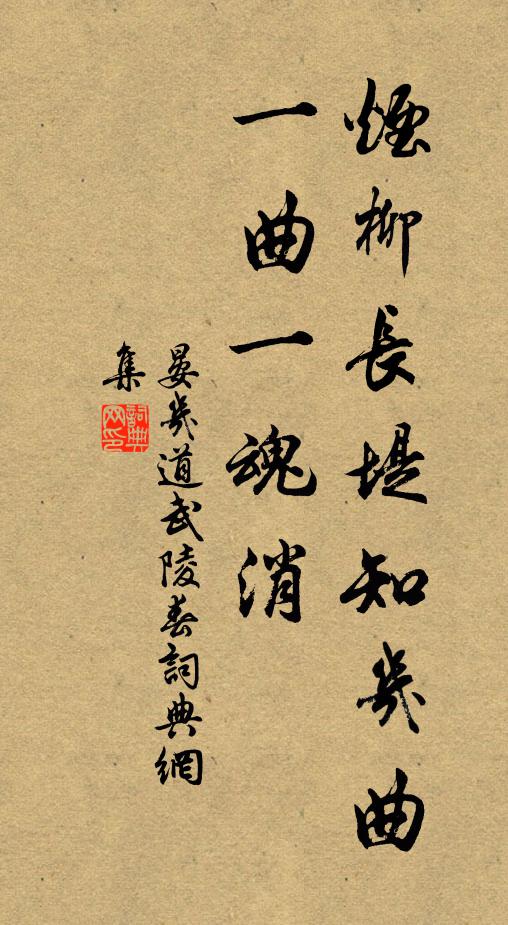 煙柳長堤知幾曲
一曲一魂消
晏幾道武陵春詞典網
集
詞典
网印